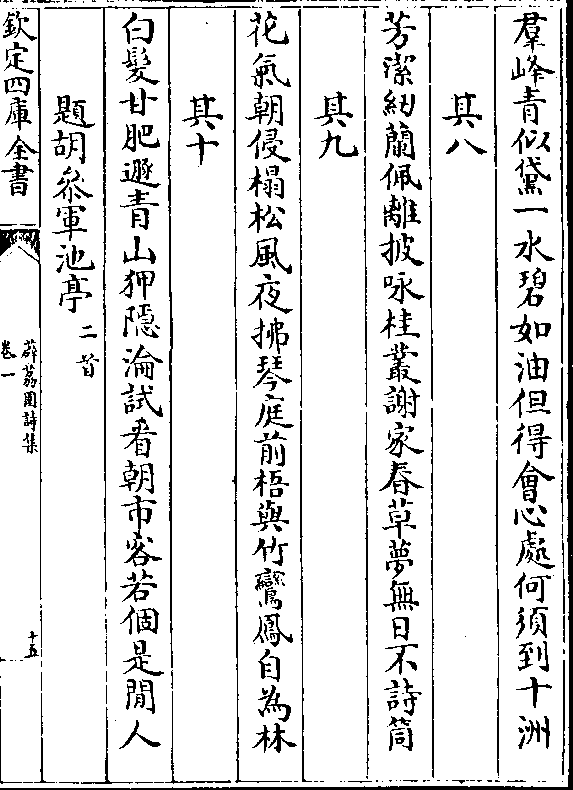 羣峰青似黛一水碧如油但得會心處何須到十洲
其八
芳潔紉蘭佩離披咏桂叢謝家春草夢無日不詩筒
其九
花氣朝侵榻松風夜拂琴庭前梧與竹鸞鳳自為林
其十
白髮甘肥遯青山狎隱淪試看朝市客若個是閒人
題胡叅軍池亭二首
欽定四庫全書
薜荔園詩集
卷一
十五